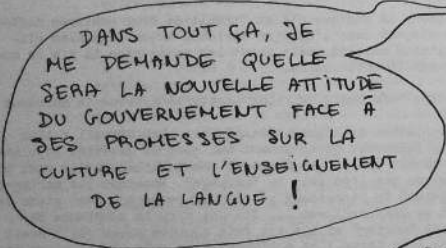 DANS TOUT ÇA, JE
ME DEMANDE QUELLE
SERA LA NOUVELLE ATTITUDE
DU GOUVERNEMENT FACE À
SES PROMESSES SUR LA
CULTURE ET L'ENSEIGNEMENT
DE LA LANGUE !